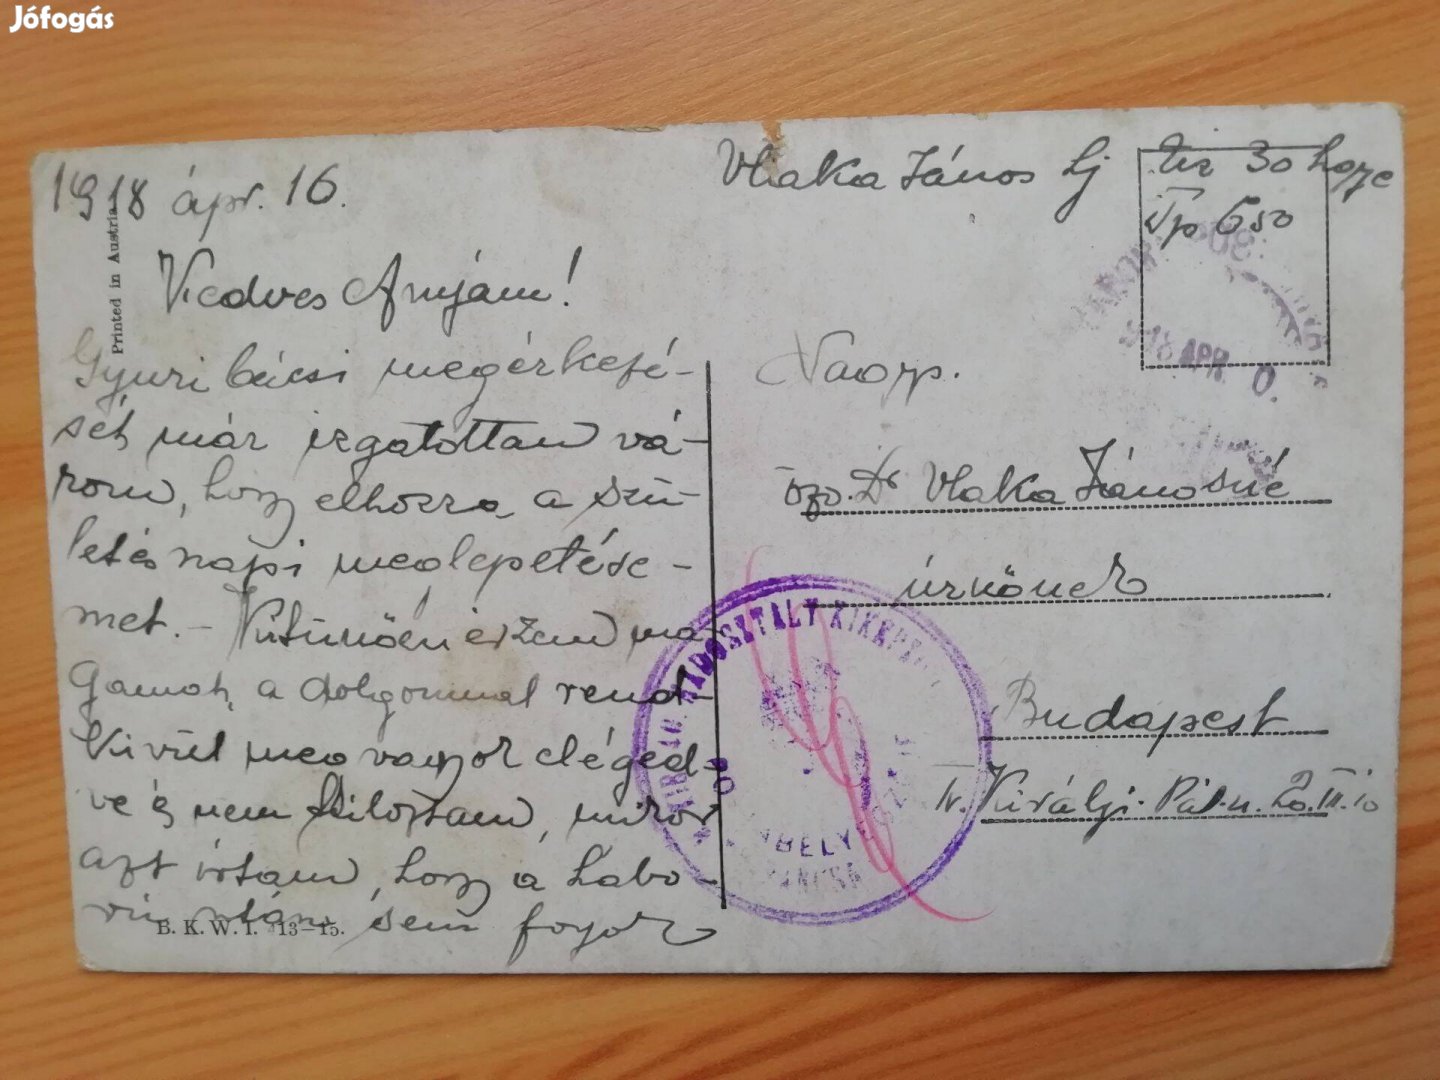 Jófogás
1918 ápr. 16.
Printed in Austria.
Kedves Anyám!
Gyuri bácsi megérkezé-
sét már izgatottan vá-
rom, hogy elhozza a szü-
letésnapi meglepetése-
met. - Kitünően érzem ma-
gamat, a dolgommal rend-
kívül meg vagyok eléged-
ve és nem túloztam, mikor
azt írtam, hogy a hábo-
rú után sem fogok
B. K. W. I. 13-15.
Vlaka János
30
Tp 650
918 APR
Nagys.
özv. Dr Vlaka Jánosné
úrnőnek
Budapest
IV. Királyi Pál-u. 20. III. 10
OSZTÁLY